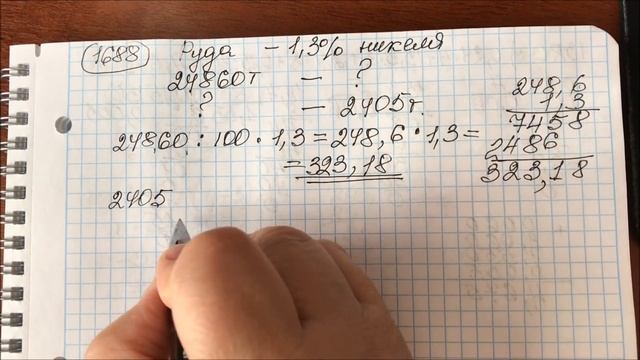 1688 Руда – 1,3% никеля
24860т – ?
? – 2405т.
24860 : 100 · 1,3 = 248,6 · 1,3 =
= 323,18
2405
248,6
1,3
7458
2486
323,18